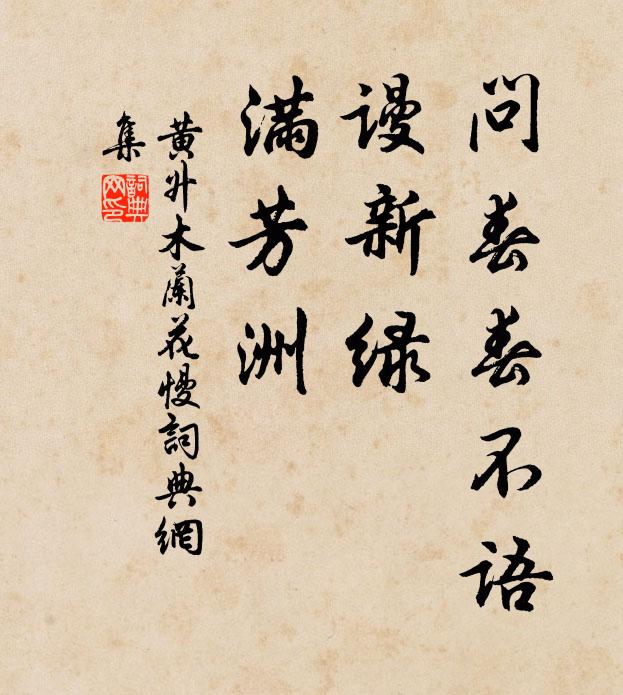 问春春不语
谩新绿
满芳洲
黄升木兰花慢词典网
集
詞典
网印